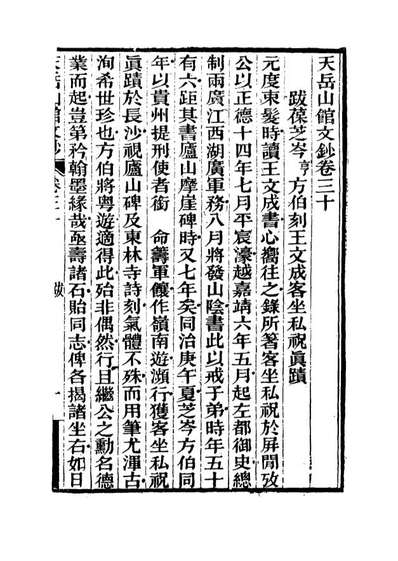 天岳山館文鈔卷三十
跋葆芝岑亨方伯刻王文成客坐私祝眞蹟
元度束髮時讀王文成書心嚮往之錄所著客坐私祝於屏閒攷
公以正德十四年七月平宸濠越嘉靖六年五月起左都御史總
制兩廣江西湖廣軍務八月將發山陰書此以戒子弟時年五十
有六距其書廬山摩崖碑時又七年矣同治庚午夏芝岑方伯同
年以貴州提刑使者銜　命籌軍饟作嶺南遊瀕行獲客坐私祝
眞蹟於長沙視廬山碑及東林寺詩刻氣體不殊而用筆尤渾古
洵希世珍也方伯將粵遊適得此殆非偶然行且繼公之勳名德
業而起豈第矜翰墨緣哉亟壽諸石貽同志俾各揭諸坐右如日
天岳山館文鈔　卷三十　跋　一